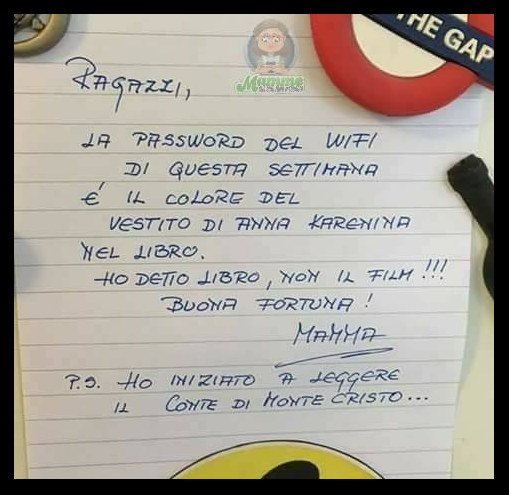 THE GAP
Mamme
RAGAZZI,
LA PASSWORD DEL WIFI
DI QUESTA SETTIMANA
É IL COLORE DEL
VESTITO DI ANNA KARENINA
NEL LIBRO.
HO DETTO LIBRO, NON IL FILM!!!
BUONA FORTUNA!
MAMMA
P.S. HO INIZIATO A LEGGERE
IL CONTE DI MONTE CRISTO...